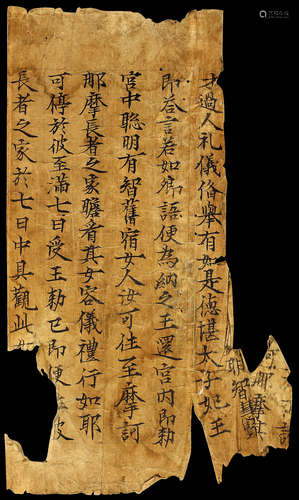 才過人礼儀俻舉有如是德諶太子妃王
即荅言若如卿語便為納之王還宮內即勑
宮中聰明有智舊宿女人汝可往至摩訶
那摩長者之家瞻看其女容儀禮行如耶
可停於彼至滿七日受王勑已即便往彼
長者之家於七日中具觀此女